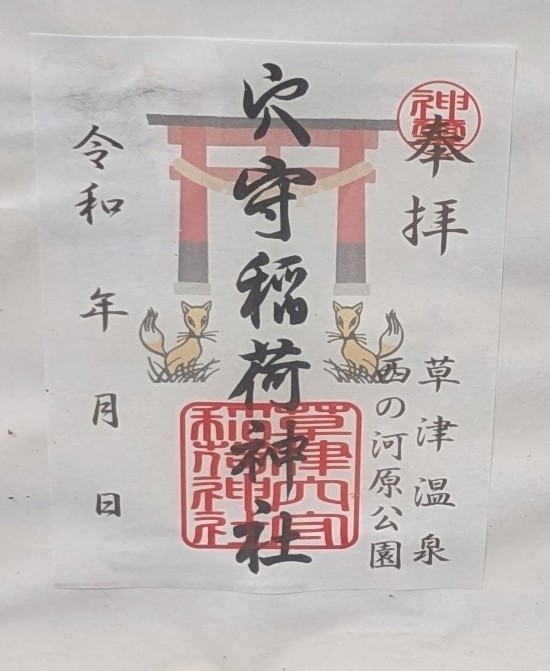 奉拝
草津温泉
西の河原公園
穴守稲荷神社
草津穴守
稲荷神社
令和 年 月 日